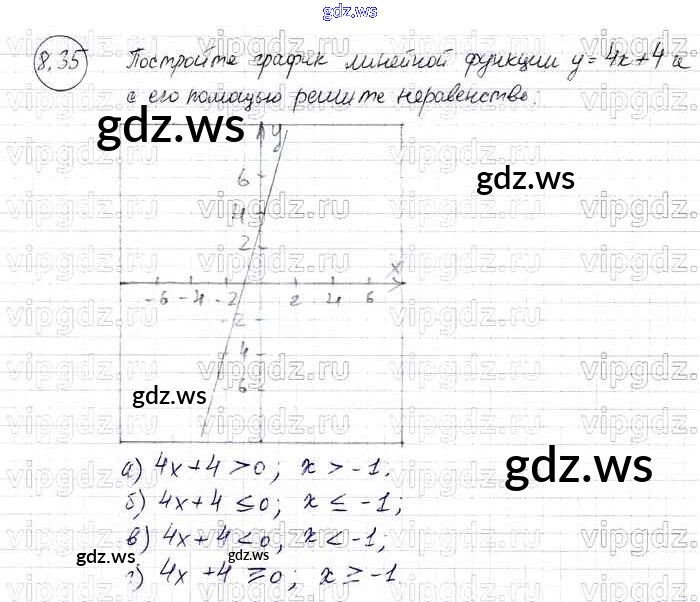 gdz.ws
8.35 Постройте график линейной функции y = 4x + 4 и
с его помощью решите неравенство:
gdz.ws
y
gdz.ws
6
4
2
x
-6 -4 -2 2 4 6
-2
-4
gdz.ws
-6
а) 4x + 4 > 0; x > -1.
gdz.ws
б) 4x + 4 ≤ 0; x ≤ -1;
в) 4x + 4 < 0; x < -1;
gdz.ws gdz.ws
г) 4x + 4 ≥ 0; x ≥ -1
vipgdz.ru